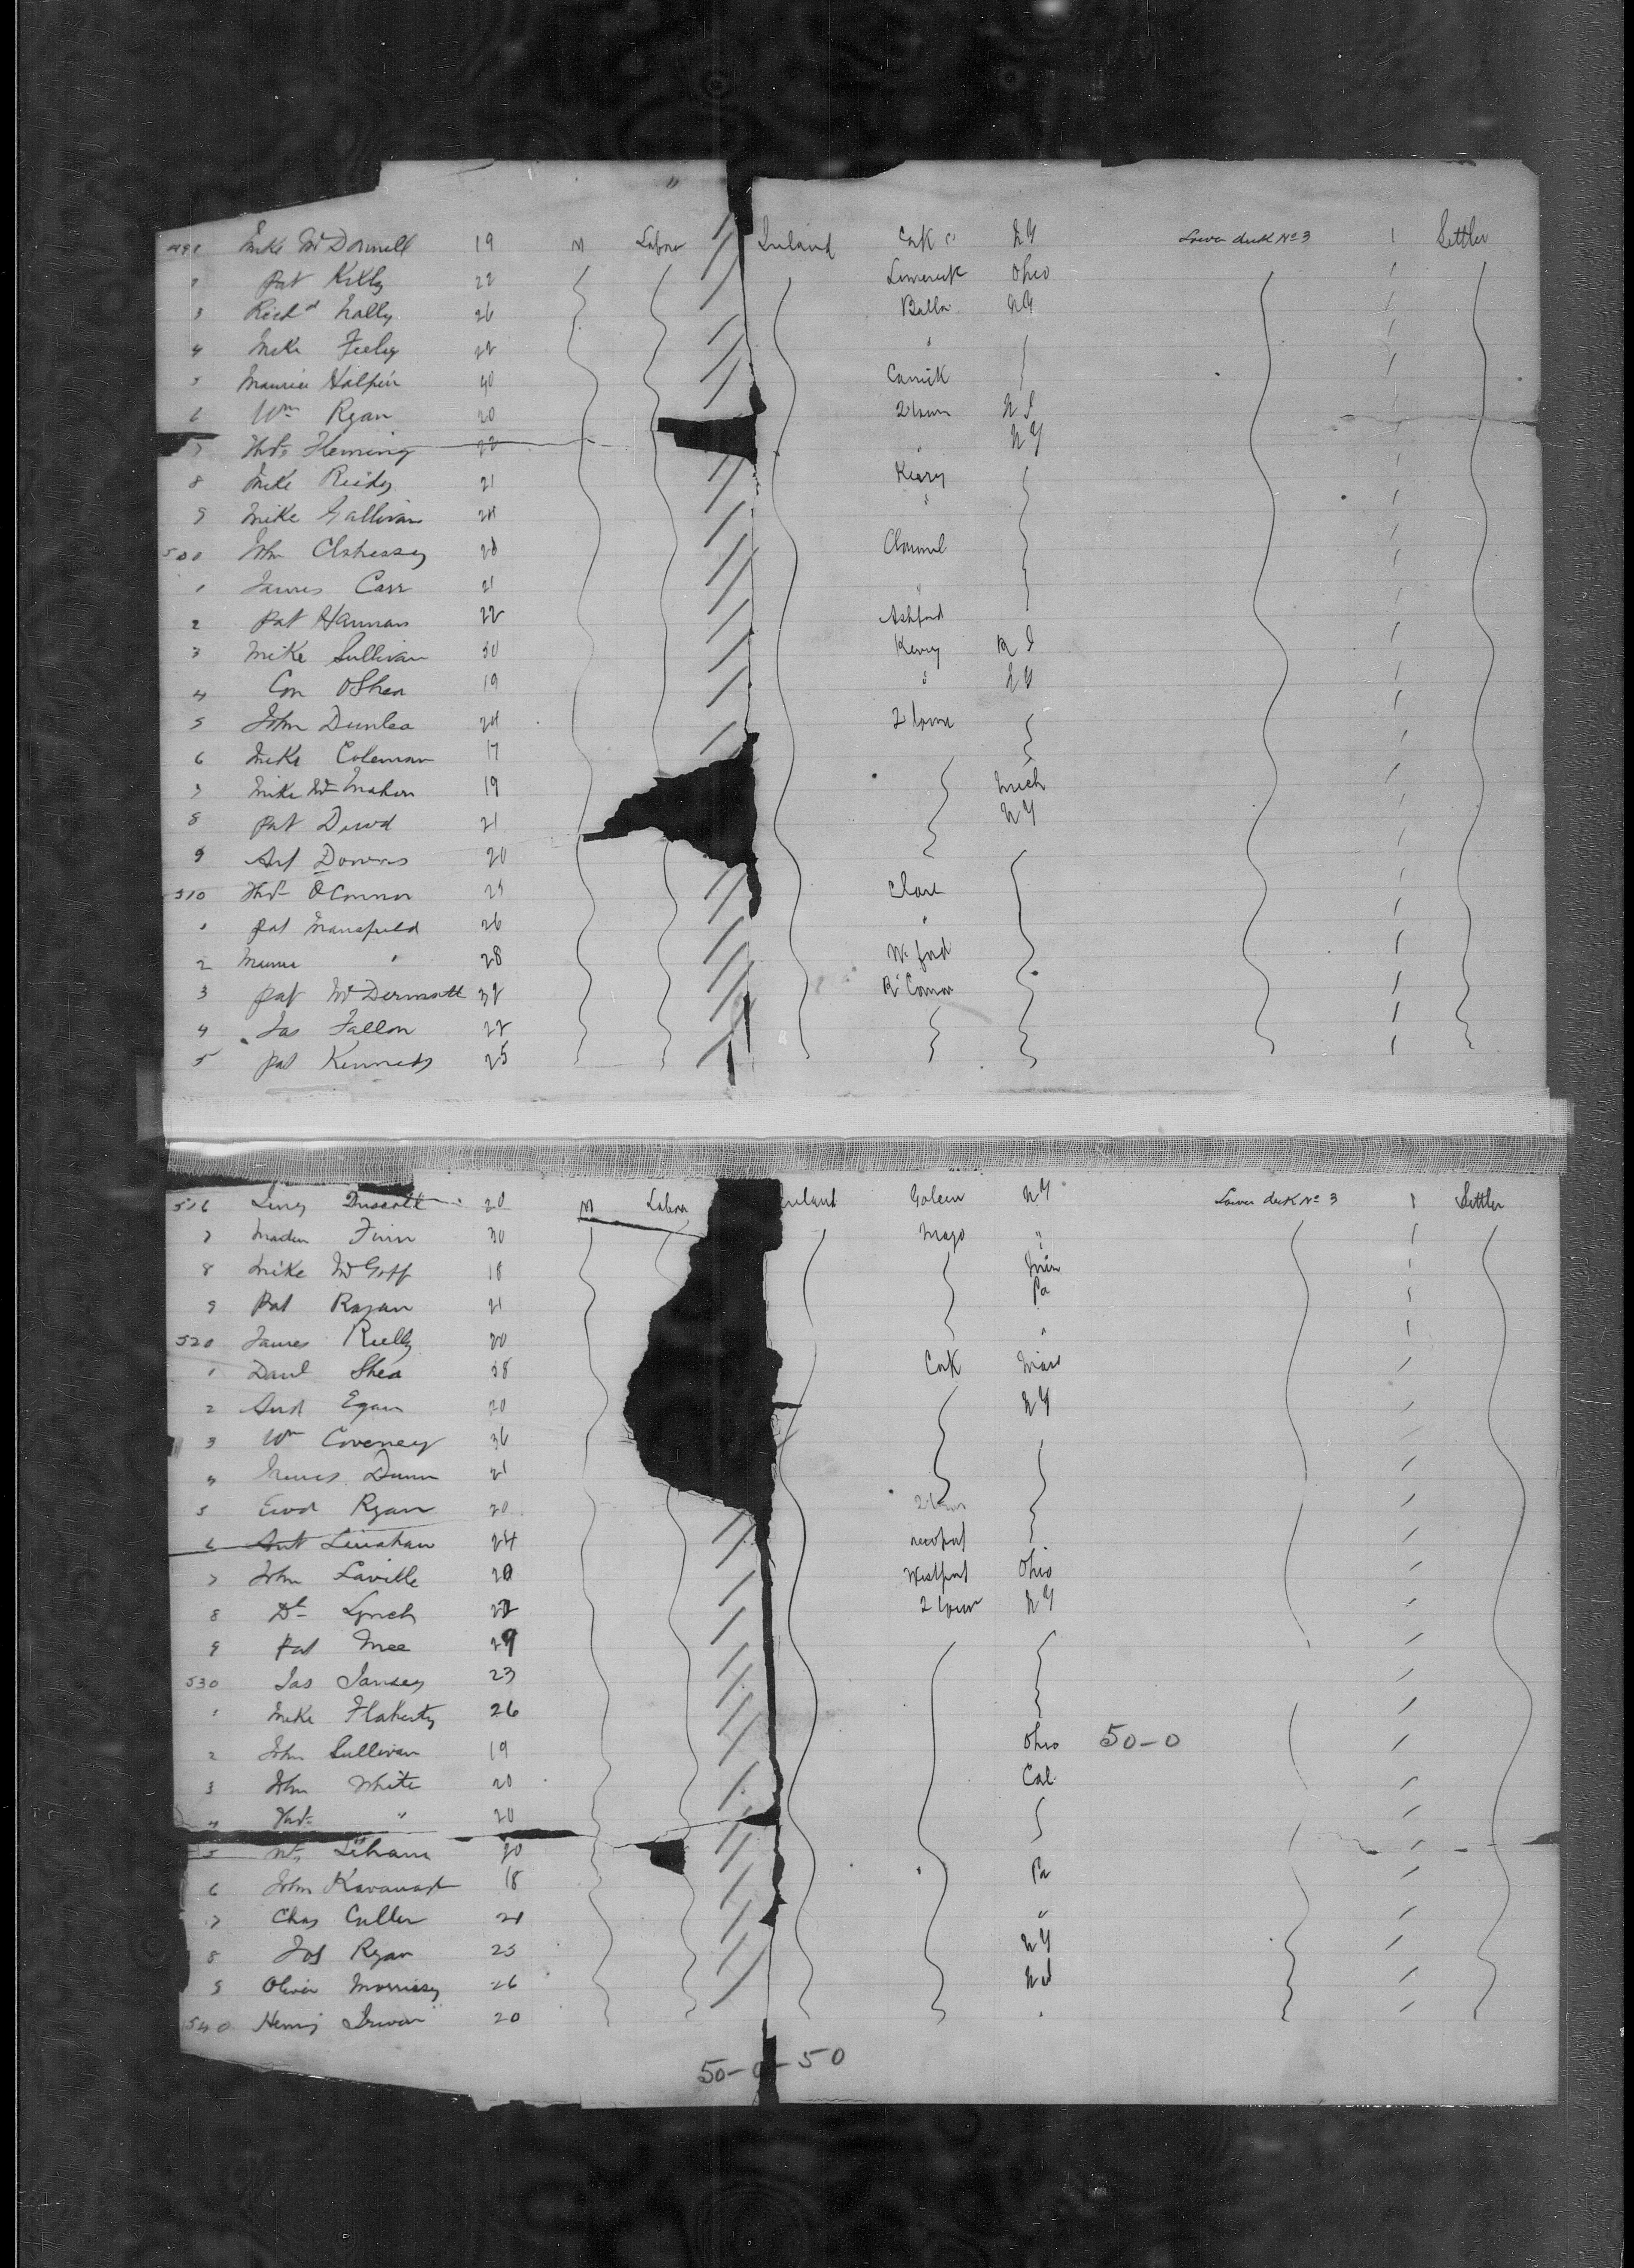 491 Mike McDonnell 19 M Labor // Ireland Cork NY Lower deck No 3 1 Settler
2 Pat Kelly 22 Limerick Ohio
3 Richd Nally 26 Balla NY
4 Mike Feeley 22 "
5 Maurice Halpin 40 Carrick
6 Wm Ryan 20 2town N J
7 Thos Fleming 22 " NY
8 Mike Reidy 21 Kerry
9 Mike Gallivan 24 "
500 John Clohessy 20 Clonmel
1 James Carr 21 "
2 Pat Hannan 22 Ashford
3 Mike Sullivan 30 Kerry R I
4 Con OShea 19 " NY
5 John Dunlea 24 2town
6 Mike Coleman 17
7 Mike McMahon 19 Mich
8 Pat Dowd 21 NY
9 Downs 20
510 Thos OConnor 25 Clare
1 Pat Mansfield 26 "
2 " 28 W ford
3 Pat McDermott 32
4 Jas Fallon 22
5 Pat Kennedy 25
516 Driscoll 20 M Labor Ireland Goleen NY Lower deck No 3 1 Settler
7 Finn 30 Mayo "
8 Mike McGoff 18
9 Pat Ragan 21 Pa
520 James Rielly 20 "
1 Danl Shea 38 Cork Mass
2 And Egan 20 NY
3 Wm Coveney 36
4 Dunn 21
5 Ewd Ryan 20 2town
6 Linahan 24 Newport
7 John Laville 20 Westport Ohio
8 Dl Lynch 22 2town NY
9 Pat Mee 29
530 Jas 23
1 Mike Flaherty 26
2 John Sullivan 19 Ohio 50-0
3 John White 20 Cal
4 Pat " 20
5 Lehane 20
6 John Kavanagh 18 Pa
7 Chas Cullen 21 "
8 Jos Ryan 25 NY
9 Oliver Morrissy 26
540 Henry 20 "
50-0-50